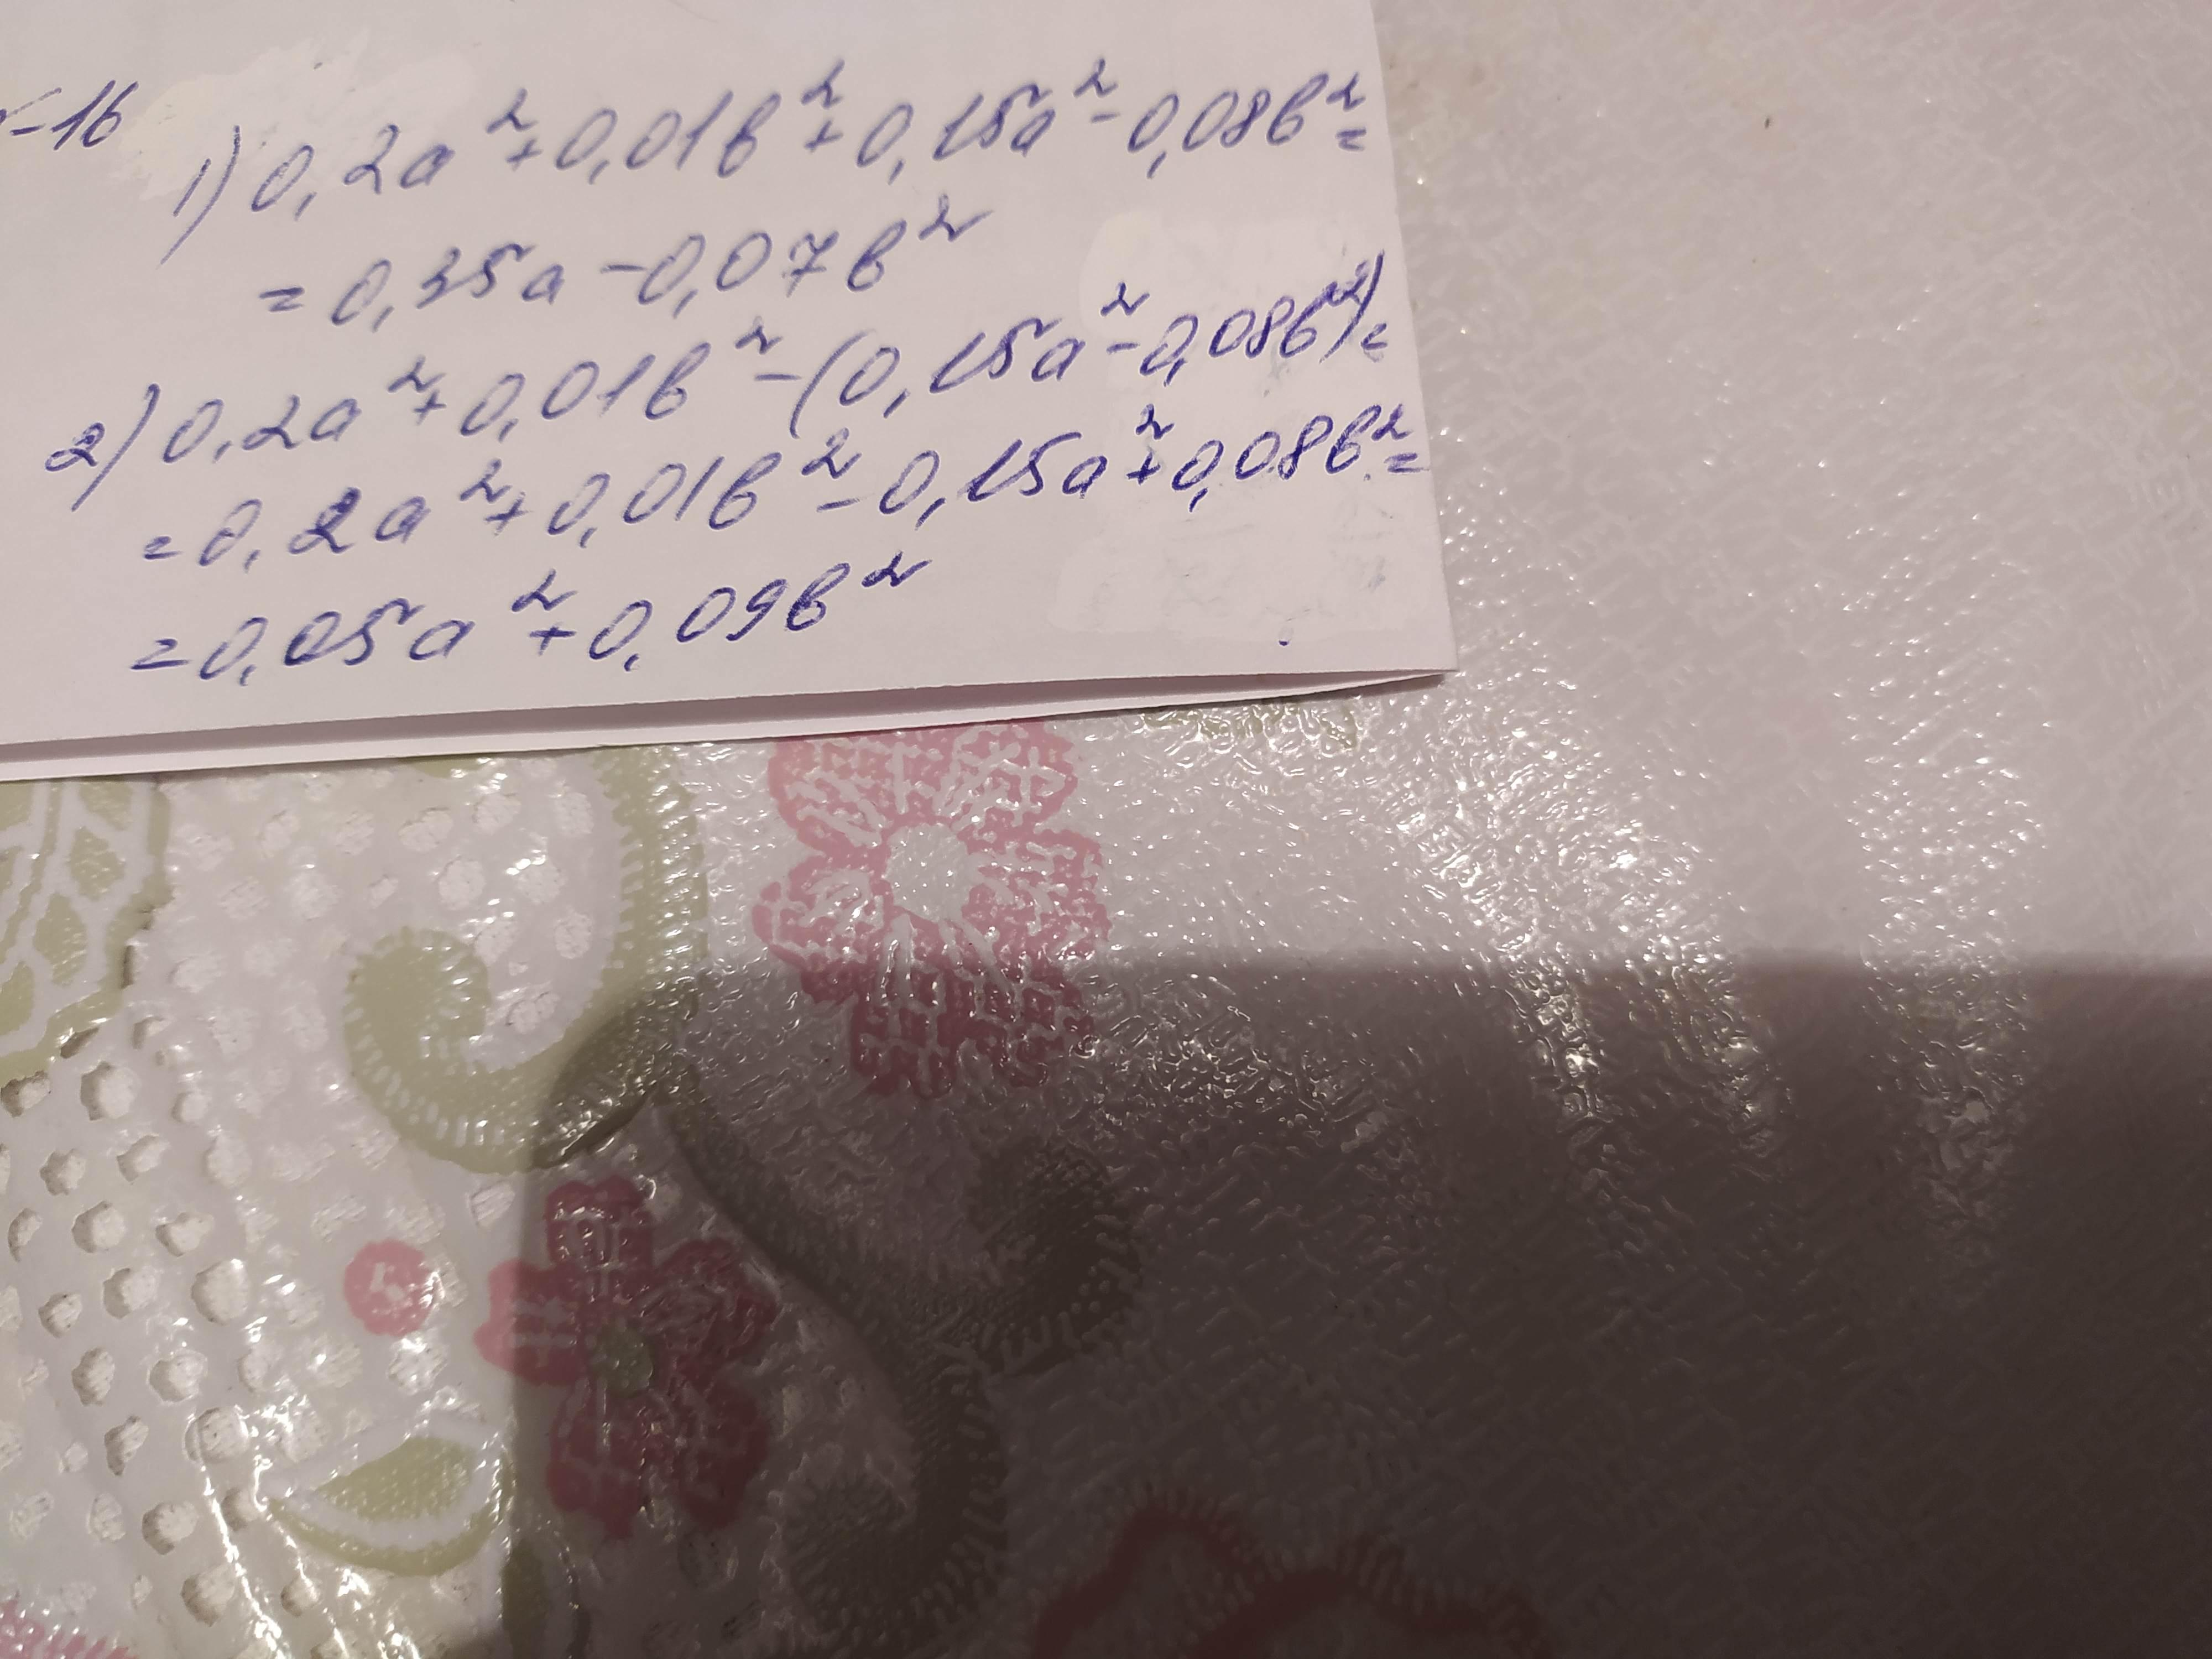 -16
1) 0,2a² + 0,01b² + 0,15a² - 0,08b² =
= 0,35a - 0,07b²
2) 0,2a² + 0,01b² - (0,15a² - 0,08b²) =
= 0,2a² + 0,01b² - 0,15a² + 0,08b² =
= 0,05a² + 0,09b²